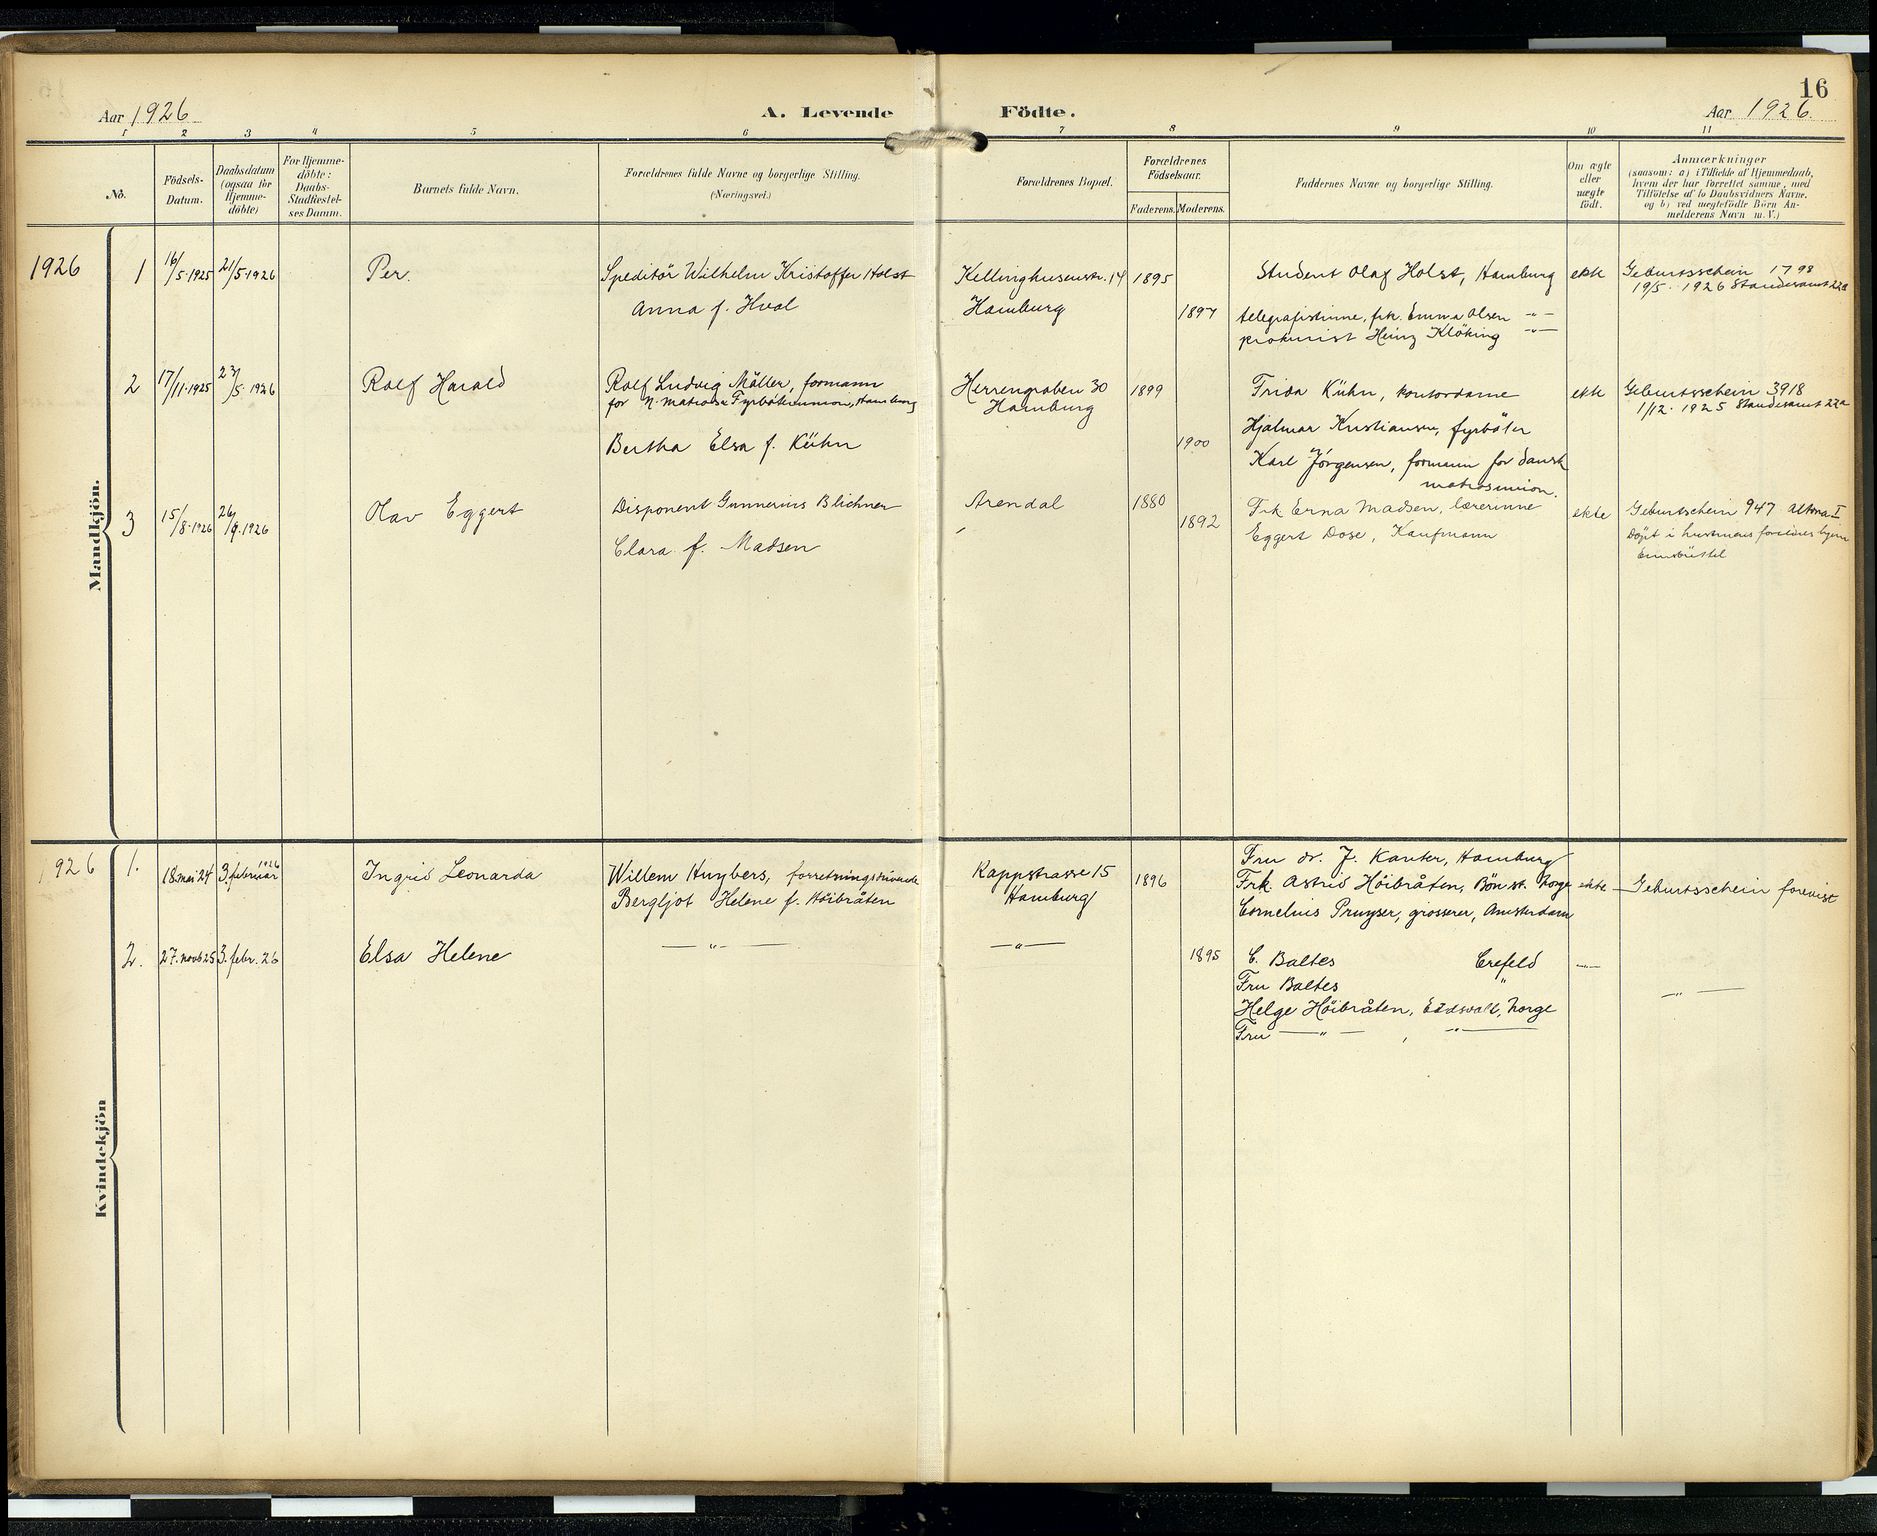 16
Aar 1926
A. Levende Födte.
Aar 1926.
1 2 3 4 5 6 7 8 9 10 11
No.
Födsels-
Datum.
Daabsdatum
(ogsaa for
Hjemme-
döbte)
For Hjemme-
döbte:
Daabs-
Stadfæstel-
ses Datum.
Barnets fulde Navn.
Forældrenes fulde Navne og borgerlige Stilling.
(Næringsvei.)
Forældrenes Bopæl.
Forældrenes
Födselsaar.
Faderens. Moderens.
Faddernes Navne og borgerlige Stilling.
Om ægte
eller
uægte
födt.
Anmærkninger
(saasom: a) i Tilfælde af Hjemmedaab,
hvem der har forrettet samme, med
Tilföielse af to Daabsvidners Navne.
og b) ved uægtefödte Börn An-
melderens Navn m. V.)
Mandkjön.
1926
1
16/5. 1925
21/5. 1926
Per.
Speditör Wilhelm Kristoffer Holst
Anna f. Hval
Kellinghusenstr. 14
Hamburg
1895
1897
Student Olaf Holst, Hamburg
telegrafistinne, frk. Emma Olsen -"-
prokurist Heinz Klöking -"-
ekte
Geburtsschein 1798
19/5. 1926 Standesamt 22a
2
17/11. 1925
23/5. 1926
Rolf Harald
Rolf Ludvig Möller, formann
for N. Matros & Fyrböterunion, Hamburg
Bertha Elsa f. Kühn
Herrengraben 30
Hamburg
1899
1900
Frida Kühn, kontordame
Hjalmar Kristiansen, fyrböter
Karl Jörgensen, formann for dansk
matrosunion.
ekte
Geburtsschein 3918
1/12. 1925 Standesamt 22a
3
15/8. 1926
26/9. 1926
Olav Eggert
Disponent Gunnerius Blichner
Clara f. Madsen
Arendal
1880
1892
Frk Erna Madsen, lærerinne
Eggert Dose, Kaufmann
ekte
Geburtschein 947 Altona I
Döpt i hustruens foreldres hjem
Eimsbüttel
Kvindekjön
1926
1.
18 mai 24
3. februar 1926
Ingrid Leonarda
Willem Huybers, forretningsdrivende
Bergljot Helene f. Höibråten
Rappstrasse 15
Hamburg
1896
Fru dr. J. Kanter, Hamburg
Frk. Astrid Höibråten, Bön st. Norge
Cornelius Pruyser, grosserer, Amsterdam
ekte
Geburtsschein forevist
2.
27. novb 25
3. febr. 26
Elsa Helene
— " —
— " —
1895
C. Baltes Crefeld
Fru Baltes "
Helge Höibråten, Eidsvoll, Norge
Fru — " — , — " —
— " —
— " —